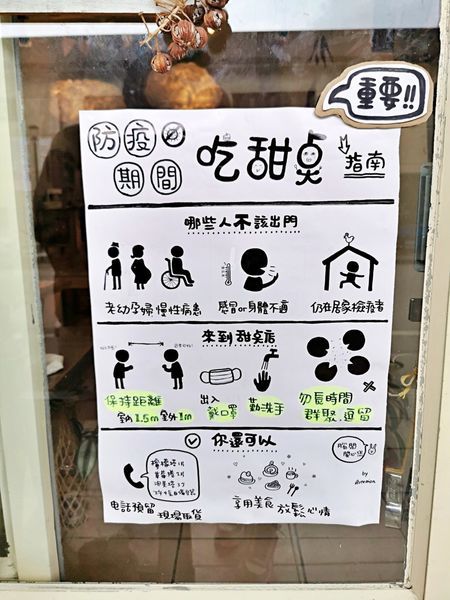 重要!!
防疫
期間
吃甜点
指南
哪些人不該出門
老幼孕婦慢性病患
感冒or身體不適
仍在居家檢疫者
來到甜点店
保持距離
室內1.5m室外1m
出入
戴口罩
勤洗手
勿長時間
群聚.逗留
你還可以
電話預留
現場取貨
享用美食
放鬆心情
by